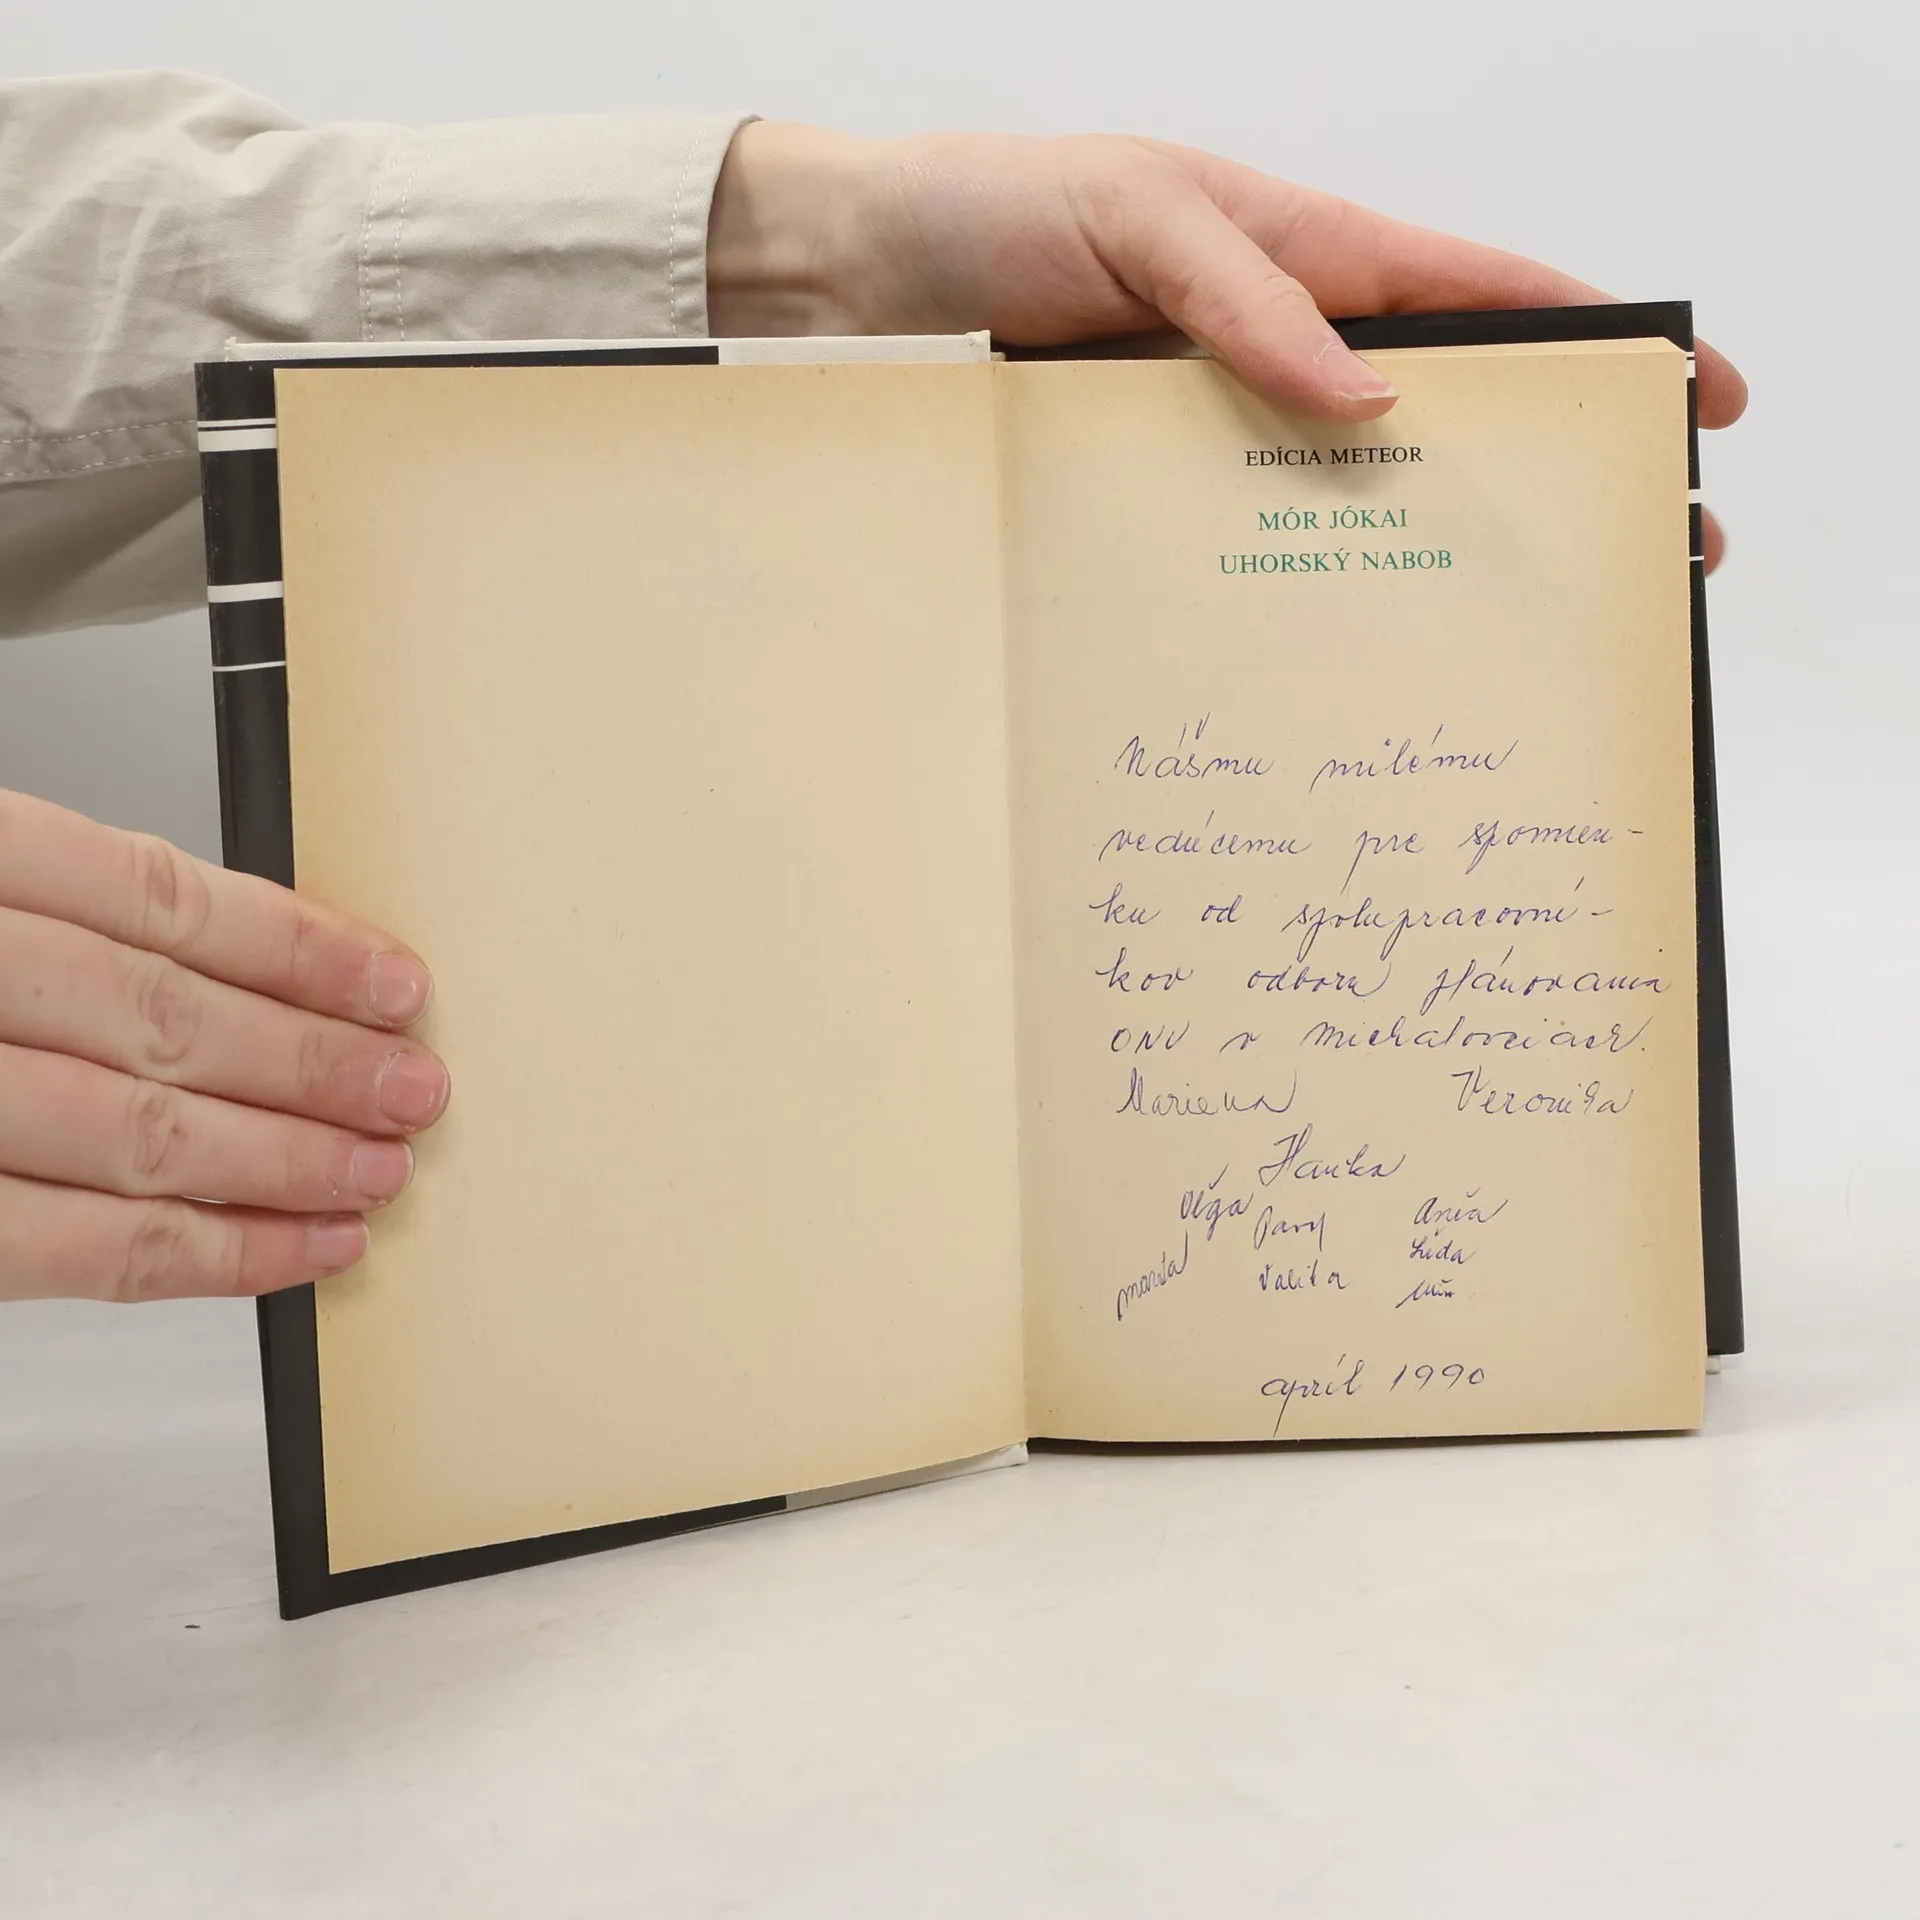 EDÍCIA METEOR
MÓR JÓKAI
UHORSKÝ NABOB
Nášmu milému
vedúcemu pre spomien-
ku od spolupracovní-
kov odboru plánovania
ONV v Michalovciach.
Mariena Veronika
Hanka
Oľga Pavel Anča
Marta Valika Lída
apríl 1990